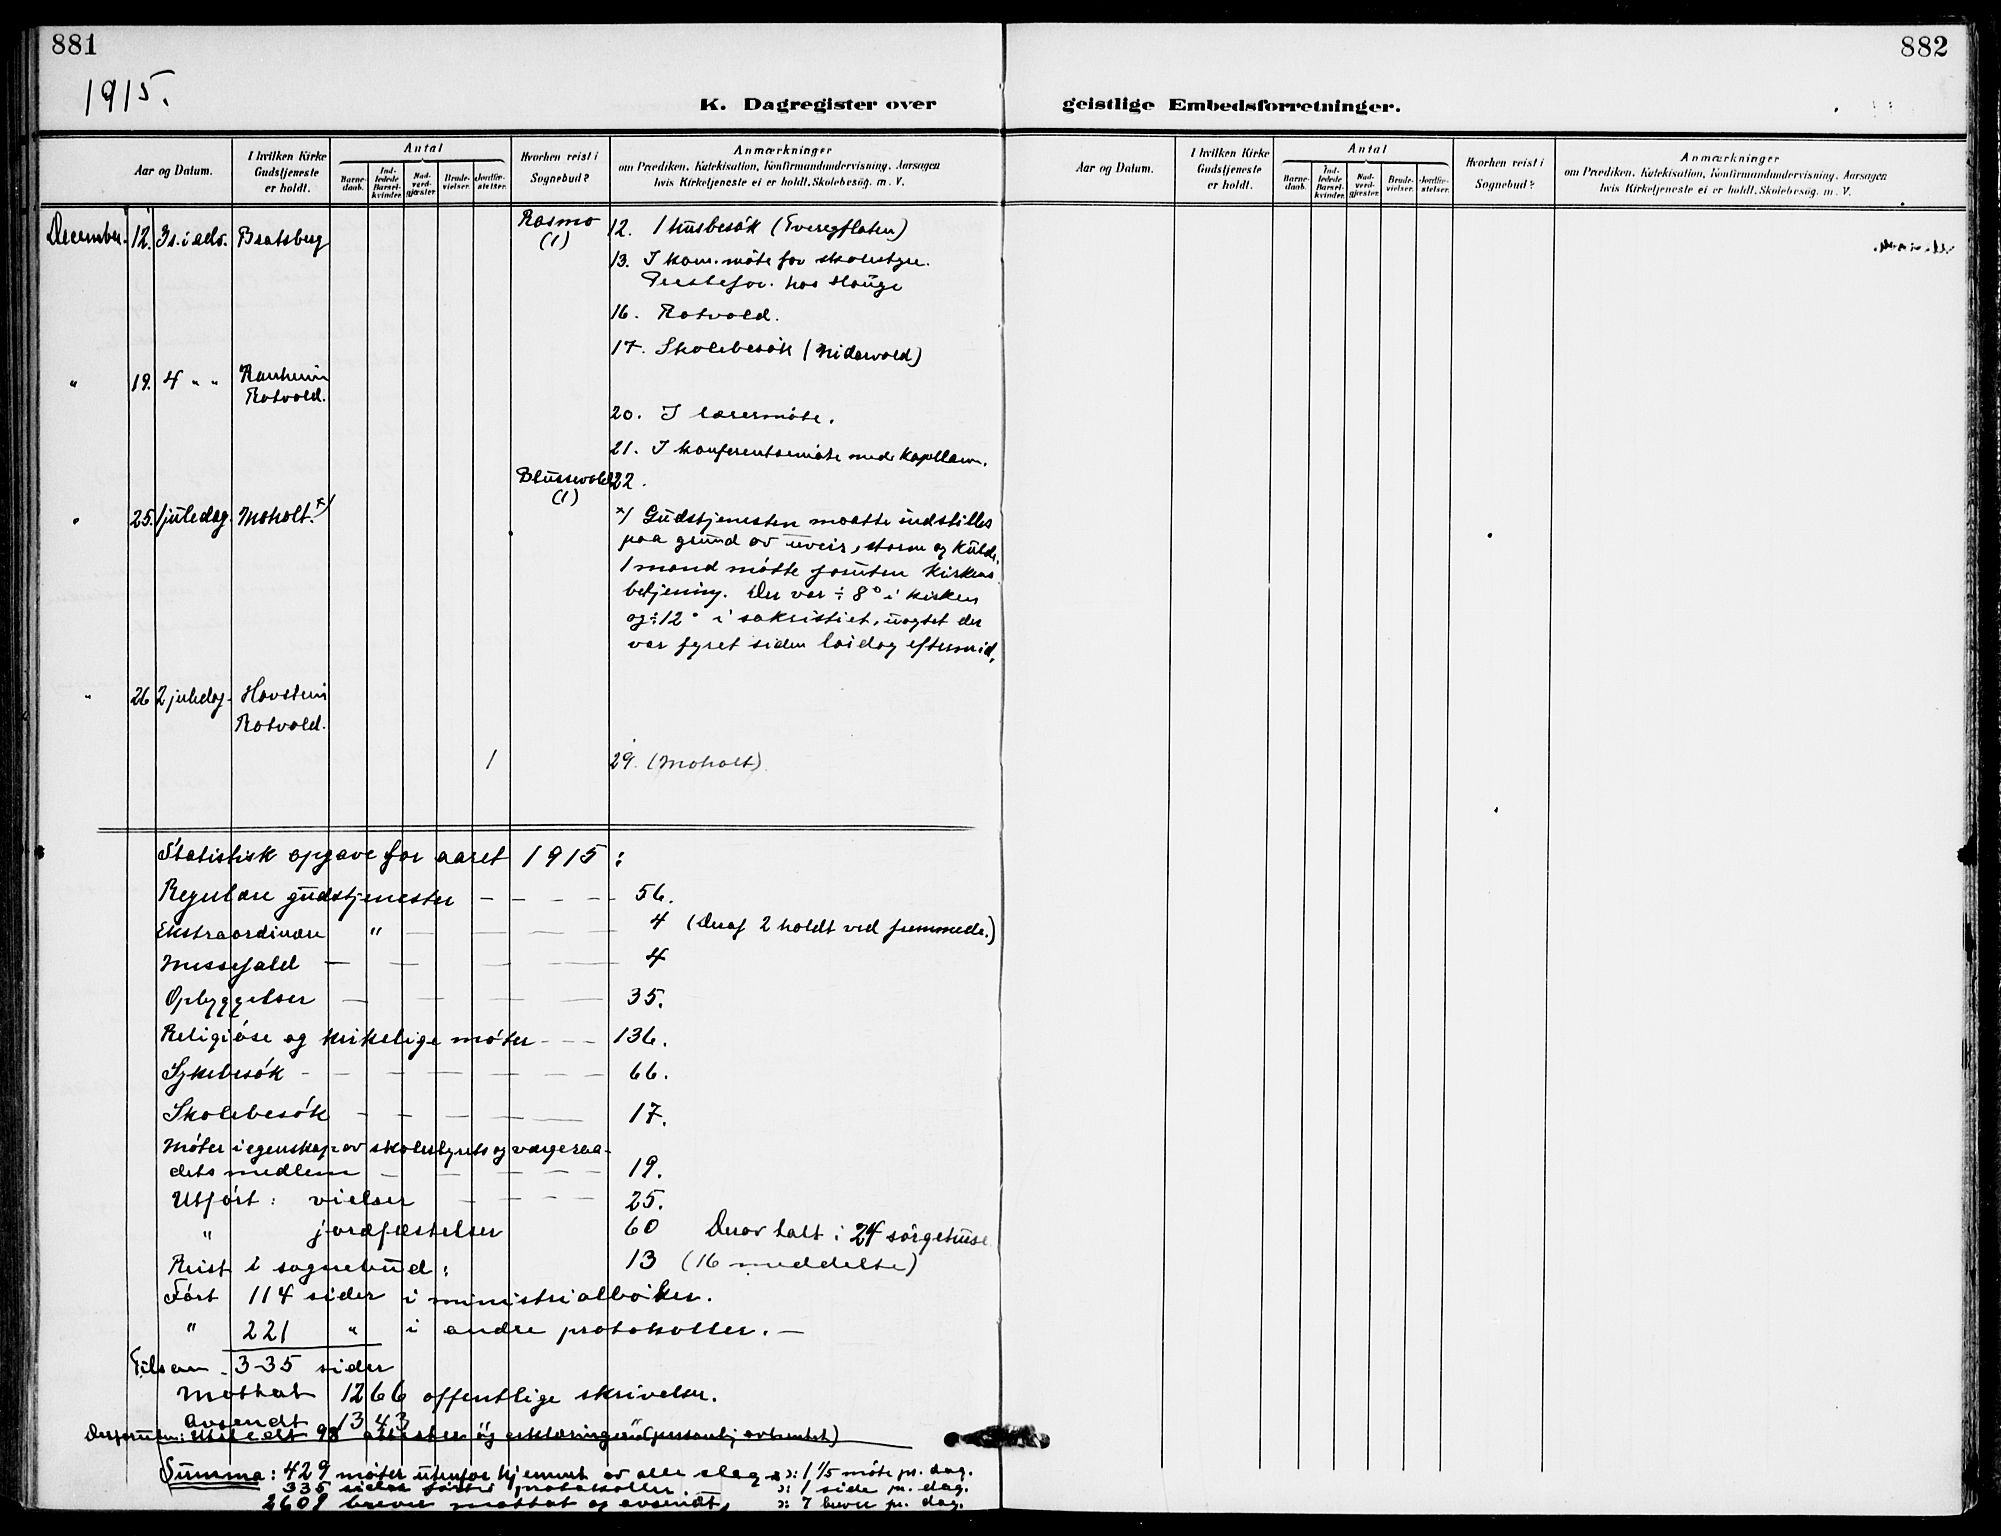 881
882
1915.
K. Dagregister over
geistlige Embedsforretninger.
Aar og Datum.
I hvilken Kirke Gudstjeneste er holdt.
Antal
Barnedaab.
Indledede Barselkvinder.
Nadverdgjæster.
Brudevielser.
Jordfæstelser.
Hvorhen reist i Sognebud?
Anmærkninger
om Prædiken, Katekisation, Konfirmandundervisning, Aarsagen
hvis Kirketjeneste ei er holdt, Skolebesøg. m. V.
Aar og Datum.
I hvilken Kirke Gudstjeneste er holdt.
Antal
Barnedaab.
Indledede Barselkvinder.
Nadverdgjester.
Brudevielser.
Jordfæstelser.
Hvorhen reist i Sognebud?
Anmærkninger
om Prædiken, Katekisation, Konfirmandundervisning, Aarsagen
hvis Kirketjeneste ei er holdt, Skolebesøg. m. V.
December. 12. 3s. i adv. Bratsberg
Rosmo (1)
12. 1 husbesøk
13. I kom. møte for skolestyre.
Presteför. hos Hauge
16. Rotvold.
17. Skolebesøk (Nidarvold)
" 19. 4 " " Ranheim
Rotvold.
20. I lærermøte.
21. I konferentsemøte med kapellan.
Blussevold (1)
22.
" 25. 1 juledag. Moholt. x)
x) Gudstjenesten maatte indstilles
paa grund av uveir, storm og kulde,
1 mand møtte foruten kirkens
betjening. Der var ÷ 8° i kirken
og ÷ 12° i sakristiet, uagtet der
var fyret siden lørdag eftermid.
" 26 2 juledag. Havstein
Rotvold.
1
29. (Moholt).
Statistisk opgave for aaret 1915:
Regulære gudstjenester - - - - 56.
Ekstraordinære " - - - 4 (Deraf 2 holdt ved fremmede.)
Messefald - - - - 4
Opbyggelser - - - - 35.
Religiøse og kirkelige møter - - - 136.
Sykebesøk - - - - - - - 66.
Skolebesøk - - - - - 17.
Møter i egenskap av skolestyrets og værgeraa-
dets medlem - - - - - 19.
Utført: vielser - - - 25.
" jordfæstelser 60 Derav talt i 24 sørgehuse
Reist i sognebud: 13 (16 meddelte)
Ført 114 sider i ministrialbøker.
" 221 " i andre protokoller. —
Tilsam. 335 sider
Mottat 1266 offentlige skrivelser.
Avsendt 1343
Desforuten: Utstedt 98 attester og erklæringer (personlig avhentet)
Summa: 429 møter utenfor hjemmet av alle slags ɔ: 1 1/5 møte pr. dag.
335 sider førte i protokoller ɔ: 1 side pr. dag.
2609 breve mottat og avsendt, ɔ: 7 breve pr. dag.